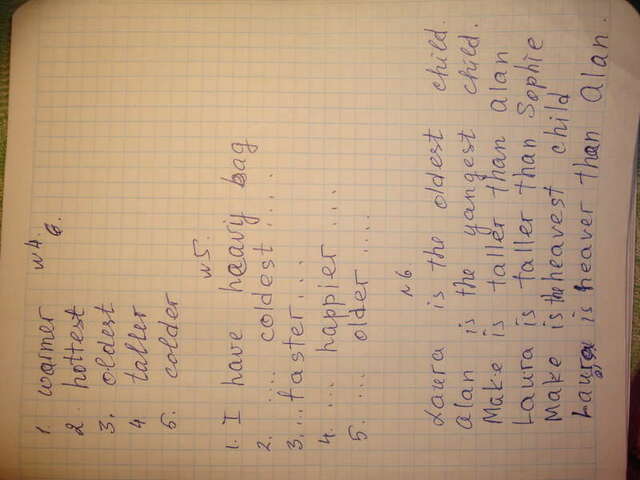 №4.
6.
1. warmer
2. hottest
3. oldest
4. taller
5. colder
№5.
1. I have heavy bag
2. .... coldest ....
3. ... faster ...
4. ... happier ....
5. ... older ....
№6.
Laura is the oldest child.
Alan is the yangest child.
Make is taller than Alan
Laura is taller than Sophie
Make is the heavest child
Laura is heaver than Alan.